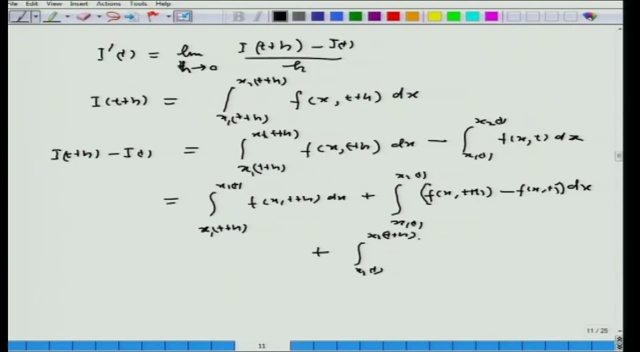 File Edit View Insert Actions Tools Help
I'(t) = lim_{h→0} (I(t+h) − I(t)) / h
I(t+h) = ∫_{x₁(t+h)}^{x₂(t+h)} f(x, t+h) dx
I(t+h) − I(t) = ∫_{x₁(t+h)}^{x₂(t+h)} f(x, t+h) dx − ∫_{x₁(t)}^{x₂(t)} f(x, t) dx
= ∫_{x₁(t+h)}^{x₁(t)} f(x, t+h) dx + ∫_{x₁(t)}^{x₂(t)} (f(x, t+h) − f(x, t)) dx
+ ∫_{x₂(t)}^{x₂(t+h)}
11 / 25
11